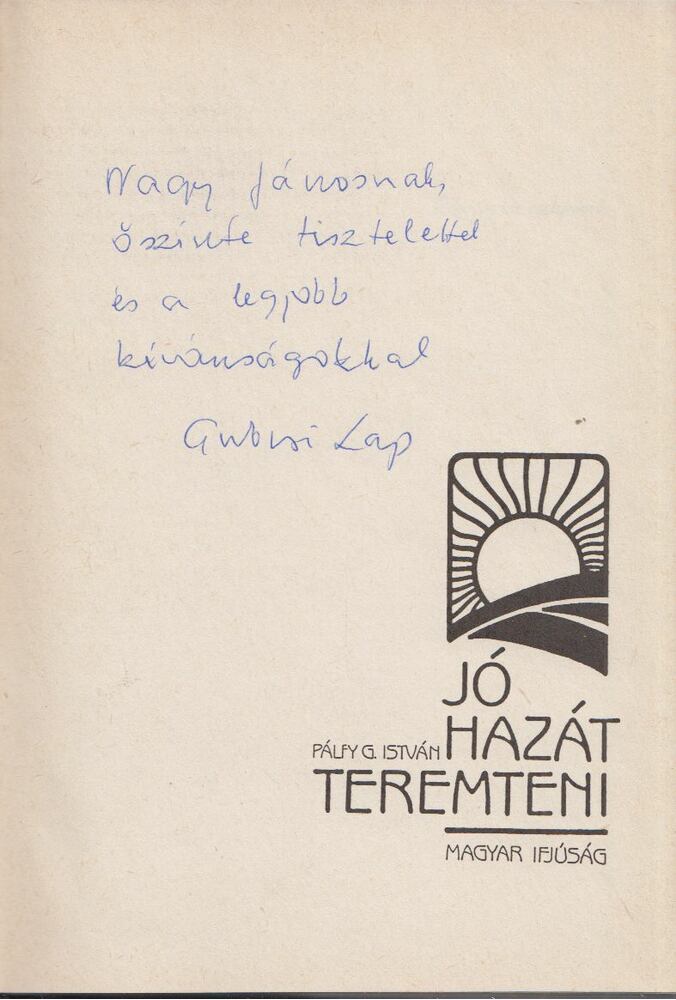 Nagy Jánosnak,
őszinte tisztelettel
és a legjobb
kívánságokkal
Gubcsi Lap
JÓ
PÁLFY G. ISTVÁN HAZÁT
TEREMTENI
MAGYAR IFJÚSÁG